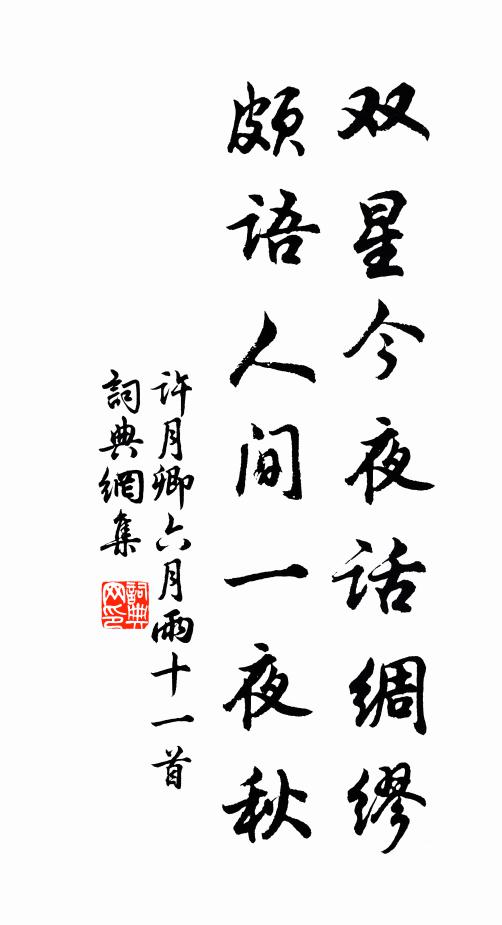 双星今夜话绸缪
颇语人间一夜秋
许月卿六月雨十一首
词典网集
词典网印